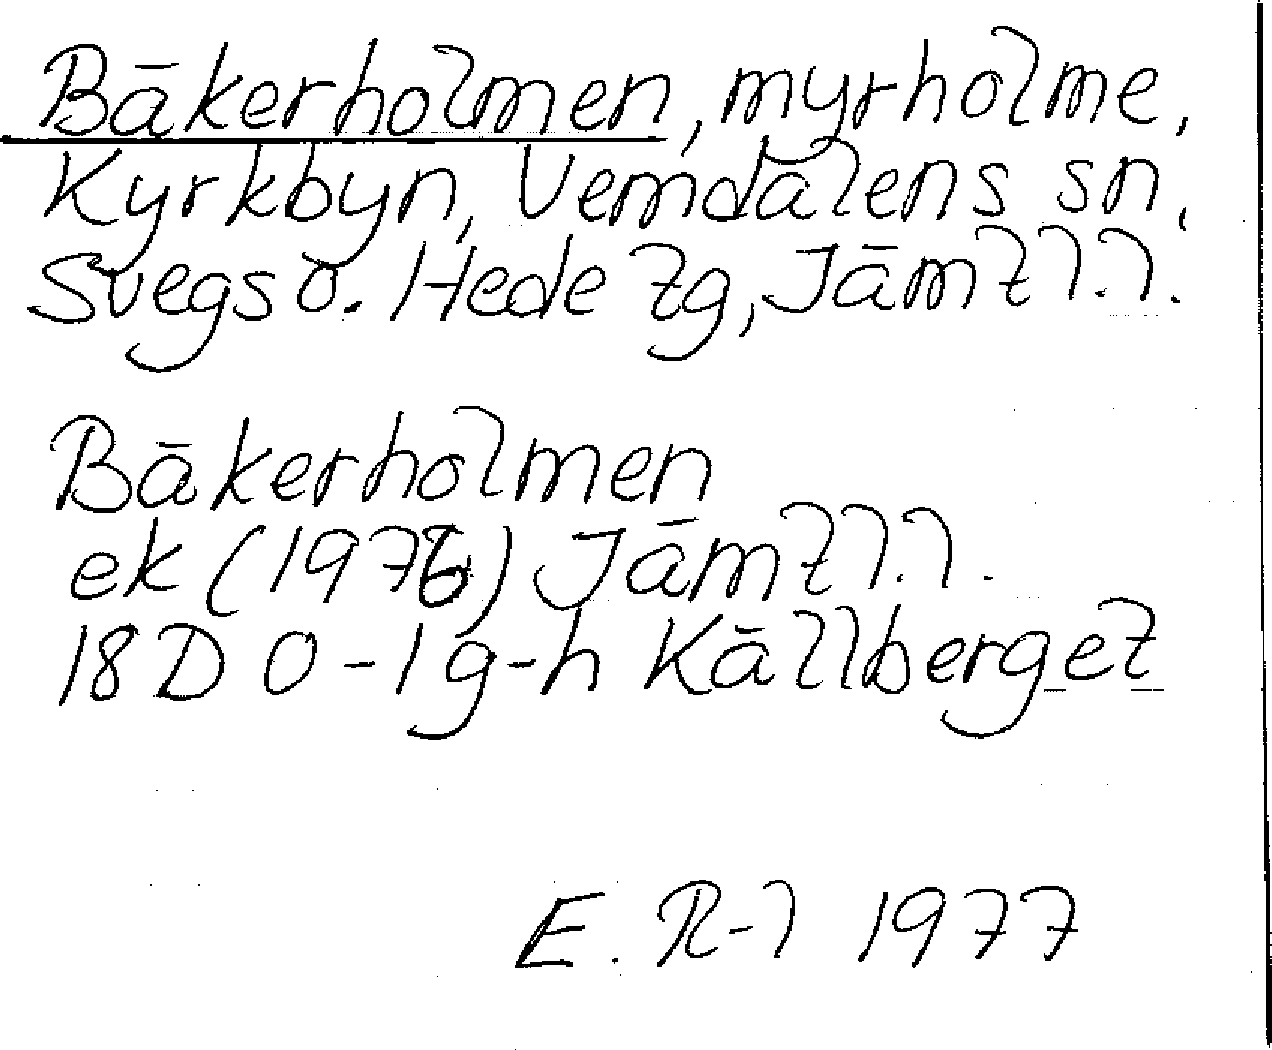 Bäkerholmen, myrholme,
Kyrkbyn, Vemdalens sn,
Svegs o. Hede tg, Jämtl.l.
Bäkerholmen
ek (1976) Jämtl.l.
18D 0-1g-h Källberget
E. R-l 1977